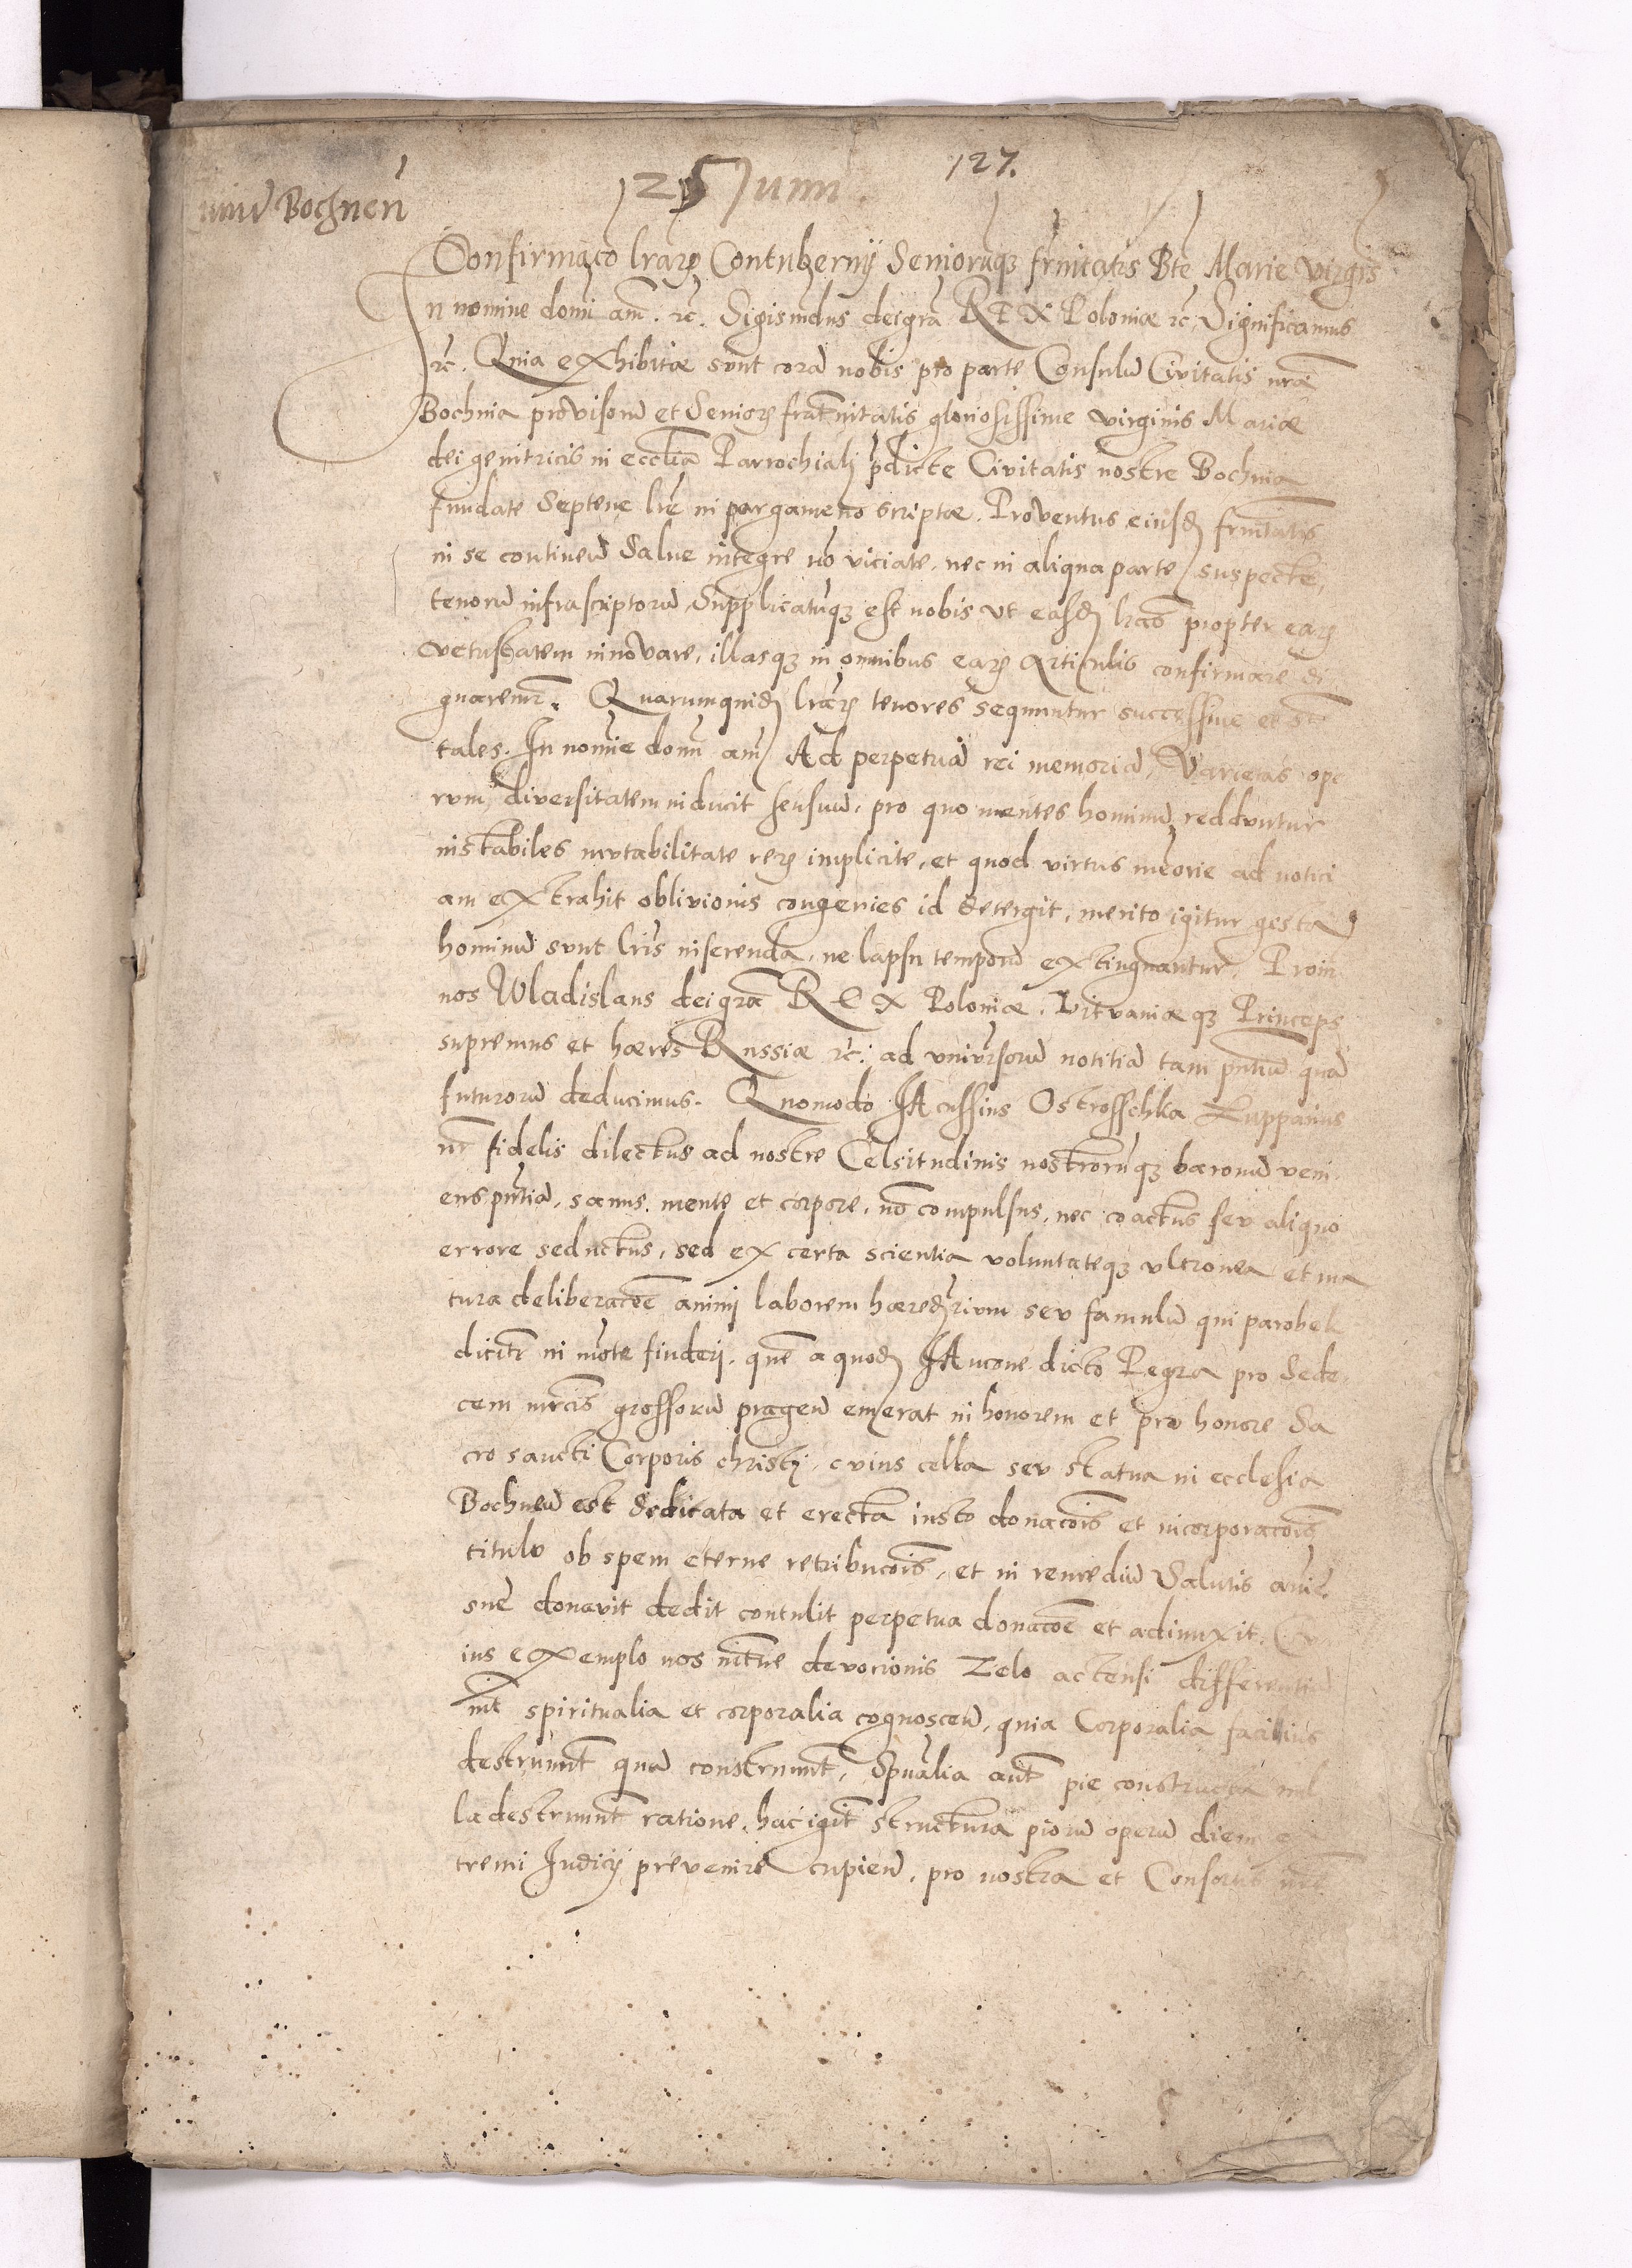 127.
125 Junii
Bochnen
Confirmaco lrarz Contubernij Seniorumqz frnitatis Bte Marie Virgis
In nomine domi am. rc. Sigismdus dei gra REX Poloniæ rc. Significamus
rc. Quia exhibitæ sunt cora nobis pro parte Consulu Civitatis nrae
Bochnia provisoru et Seniorz fratnitatis gloriosissime virginis Mariæ
dei genitricis in ecclia Parrochiali pdicte Civitatis nostre Bochnia
fundate Septene lre in pargameno scriptæ. Proventus eiusd frnitatis
in se continen Salve integre no viciate, nec in aliqua parte suspecte,
tenoru infrascriptoru, Supplicatuqz est nobis ut easd lras propter earz
vetustatem innovare, illasqz in omnibus earz articulis confirmare di
gnaremr. Quarumquid lrarz tenores sequuntur successive et st
tales. In nomie domi am Ad perpetua rei memoria, Varietas ope
rum, diversitatem inducit sensuum, pro quo mentes hominu redduntur
instabiles mutabilitate rerz implicite, et quod virtus meorie ad notici
am extrahit oblivionis congeries id detergit, merito igitur gesta
hominu sunt lris inserenda, ne lapsu temporu extinguantur. Proin
nos Wladislaus dei gra REX Poloniæ, Lituaniæqz Princeps
supremus et hæres Russiæ rc. ad universoru notitia tam pntiu qua
futuroru deducimus. Quomodo JAcussius Ostrosschka Zuppaius
nr fidelis dilectus ad nostre Celsitudinis nostroruqz baronu veni
ens pntia, sanus mente et corpore, no compulsus, nec coactus seu aliquo
errore seductus, sed ex certa scientia voluntateqz ultronea et ma
tura deliberacoe animi laborem hæredrium seu famulu qui parobek
dicitr in mote finderj, que a quod JAncone dicto Regra pro Sede
cem mrcis grossoru pragen emerat in honorem et pro honore Sa
cro sancti Corporis christi, cuius cella seu statua in ecclesia
Bochnen est dedicata et erecta iusto donacois et incorporacois
titulo ob spem eterne retribucois, et in remediu Salutis anie
sue donavit dedit contulit perpetua donacoe et adiunxit, Cu
ius exemplo nos mtue devocionis zelo accensi differentia
int spiritualia et corporalia cognoscen, quia Corporalia facilius
destruunt qua construunt, Spualia aut pie constructa nul
la destruunt ratione, hac igit structura pioru operu diem ex
tremi Judicij prevenire cupien, pro nostra et Consortis nre